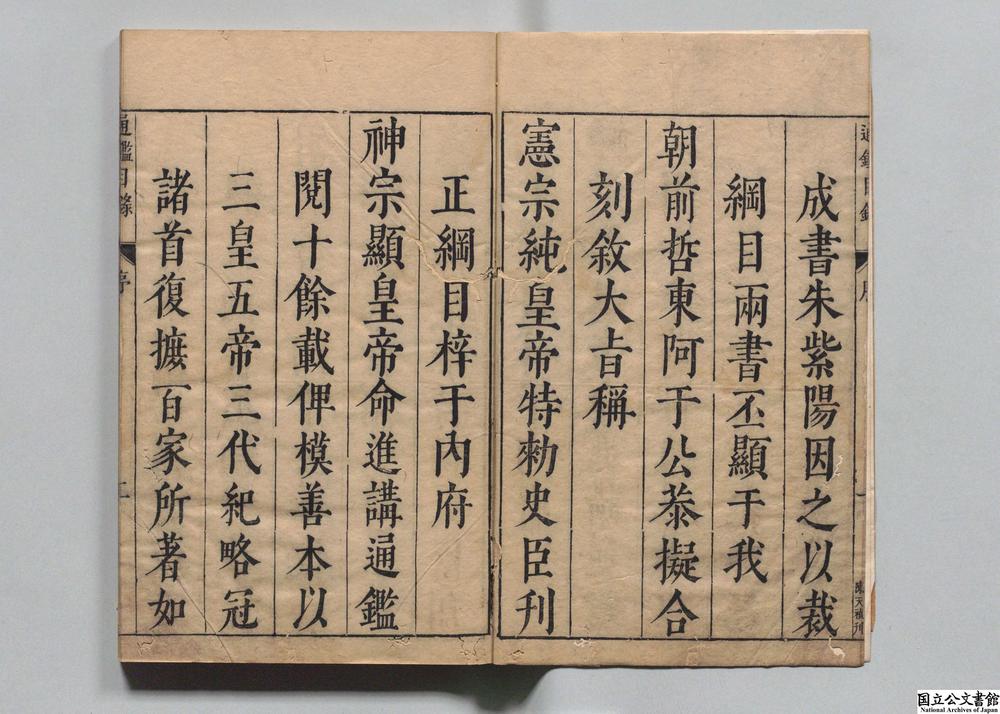 成書朱紫陽因之以裁
綱目兩書丕顯于我
朝前哲東阿于公恭擬合
刻敘大㫖稱
憲宗純皇帝特勑史臣刊
正綱目梓于內府
神宗顯皇帝命進講通鑑
閱十餘載俾模善本以
三皇五帝三代紀略冠
諸首復摭百家所著如
通鑑目錄
序
二
国立公文書館
National Archives of Japan